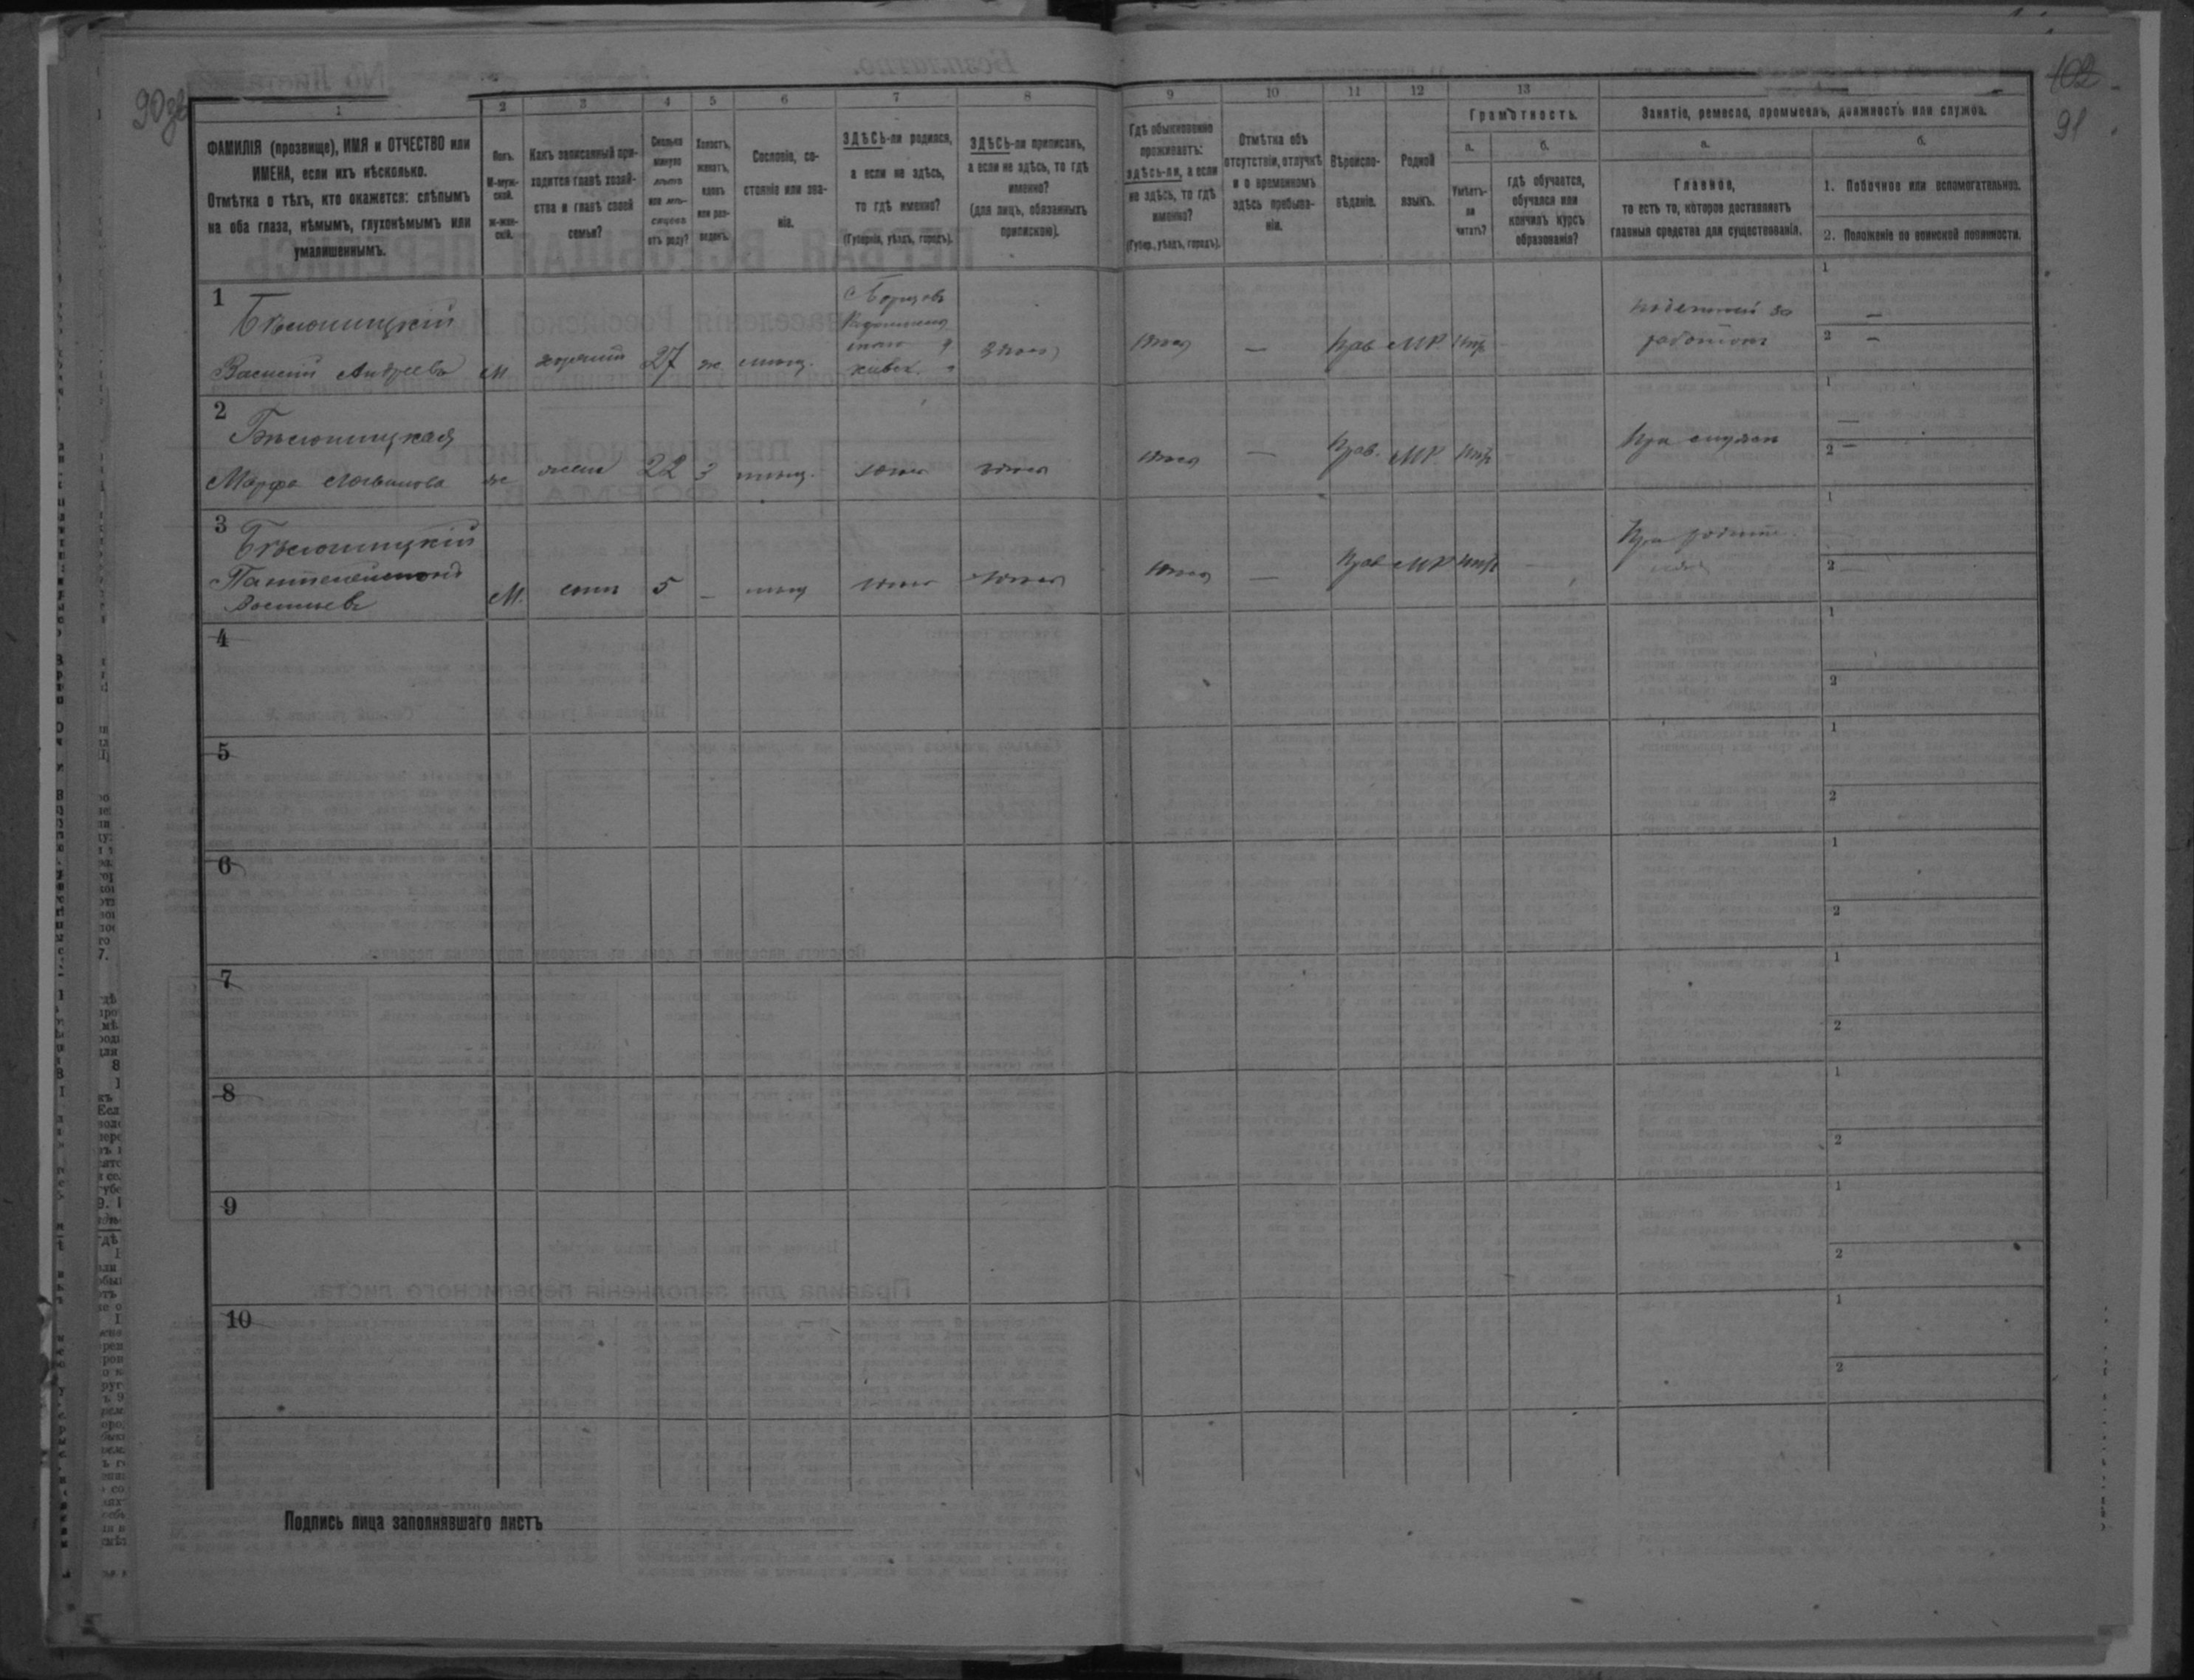 90зв
102
91
1
2
3
4
5
6
7
8
9
10
11
12
13
ФАМИЛІЯ (прозвище), ИМЯ и ОТЧЕСТВО или
ИМЕНА, если ихъ нѣсколько.
Отмѣтка о тѣхъ, кто окажется: слѣпымъ
на оба глаза, нѣмымъ, глухонѣмымъ или
умалишеннымъ.
Полъ.
М-муж-
ской.
ж-жен-
скій.
Какъ записанный при-
ходится главѣ хозяй-
ства и главѣ своей
семьи?
Сколько
минуло
лѣтъ
или мѣ-
сяцевъ
отъ роду?
Холостъ,
женатъ,
вдовъ
или раз-
веденъ.
Сословіе, со-
стояніе или зва-
ніе.
ЗДѢСЬ-ли родился,
а если не здѣсь,
то гдѣ именно?
(Губернія, уѣздъ, городъ).
ЗДѢСЬ-ли приписанъ,
а если не здѣсь, то гдѣ
именно?
(для лицъ, обязанныхъ
припискою).
Гдѣ обыкновенно
проживаетъ:
здѣсь-ли, а если
не здѣсь, то гдѣ
именно?
(Губер., уѣздъ, городъ).
Отмѣтка объ
отсутствіи, отлучкѣ
и о временномъ
здѣсь пребыва-
ніи.
Вѣроиспо-
вѣданіе.
Родной
языкъ.
Грамотность.
а.
Умѣетъ-
ли
читать?
б.
гдѣ обучается,
обучался или
кончилъ курсъ
образованія?
Занятіе, ремесло, промыселъ, должность или служба.
а.
Главное,
то есть то, которое доставляетъ
главныя средства для существованія.
б.
1. Побочное или вспомогательное.
2. Положеніе по воинской повинности.
1
Бѣлюницкій
Василій Андреевъ
М хозяинъ 27 ж мѣщ.
здѣсь
здѣсь — Прав МР нѣтъ
1 —
2 —
2
Бѣлюницкая
Марфа Логвинова
ж жена 22 З мѣщ. здѣсь здѣсь
здѣсь — Прав. МР нѣтъ
При мужѣ
1 —
2 —
3
Бѣлюницкій
Пантелеймонъ
Васильевъ
М. сынъ 5 — мѣщ здѣсь здѣсь
здѣсь — Прав МР нѣтъ
При
1
2 —
4
1
2
5
1
2
6
1
2
7
1
2
8
1
2
9
1
2
10
1
2
Подпись лица заполнявшаго листъ